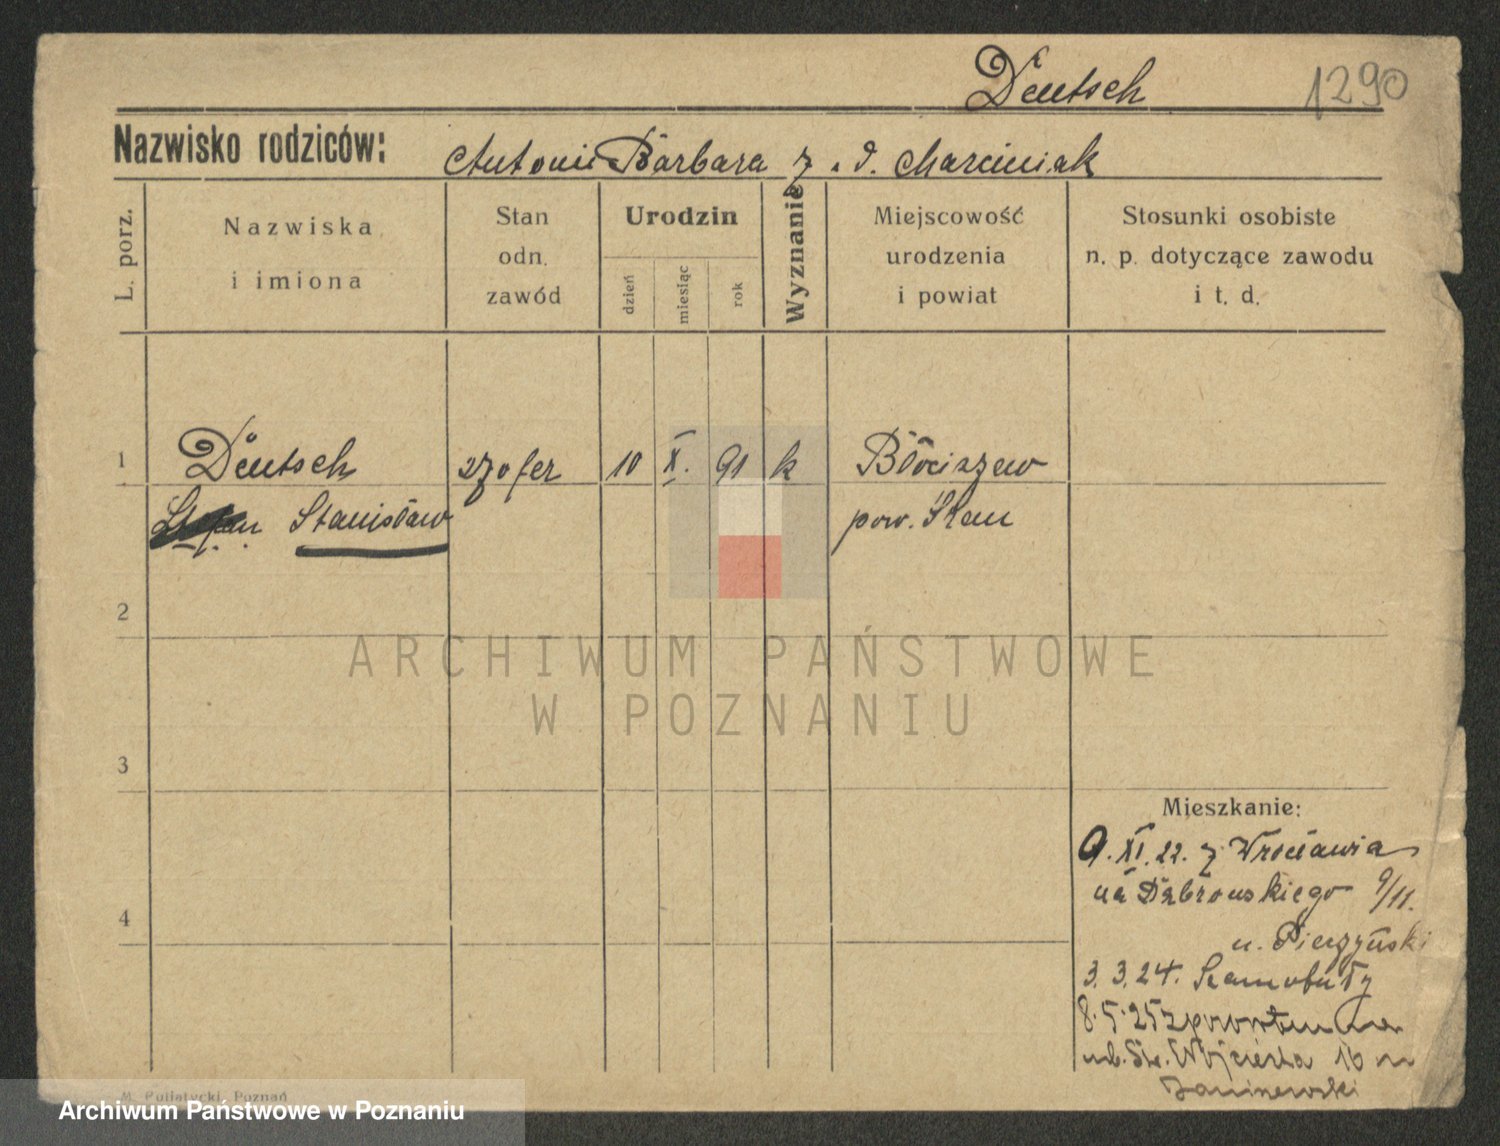 Deutsch 1290
Nazwisko rodziców: Antoni Barbara z. d. Marciniak
L. porz.
Nazwiska
i imiona
Stan
odn.
zawód
Urodzin
dzień
miesiąc
rok
Wyznanie
Miejscowość
urodzenia
i powiat
Stosunki osobiste
n. p. dotyczące zawodu
i t. d.
1 Deutsch szofer 10 X. 91 k Błociszew
Stefan Stanisław pow. Śrem
2
ARCHIWUM PAŃSTWOWE
W POZNANIU
3
Mieszkanie:
9. XI. 22. z Wrocławia
na Dąbrowskiego 9/11.
u. Pierzyński
4
3. 3. 24. Szamotuły
8. 5. 25 z powrotem
ul. Św. Wojciecha 16
M. Putiatycki, Poznań
Archiwum Państwowe w Poznaniu